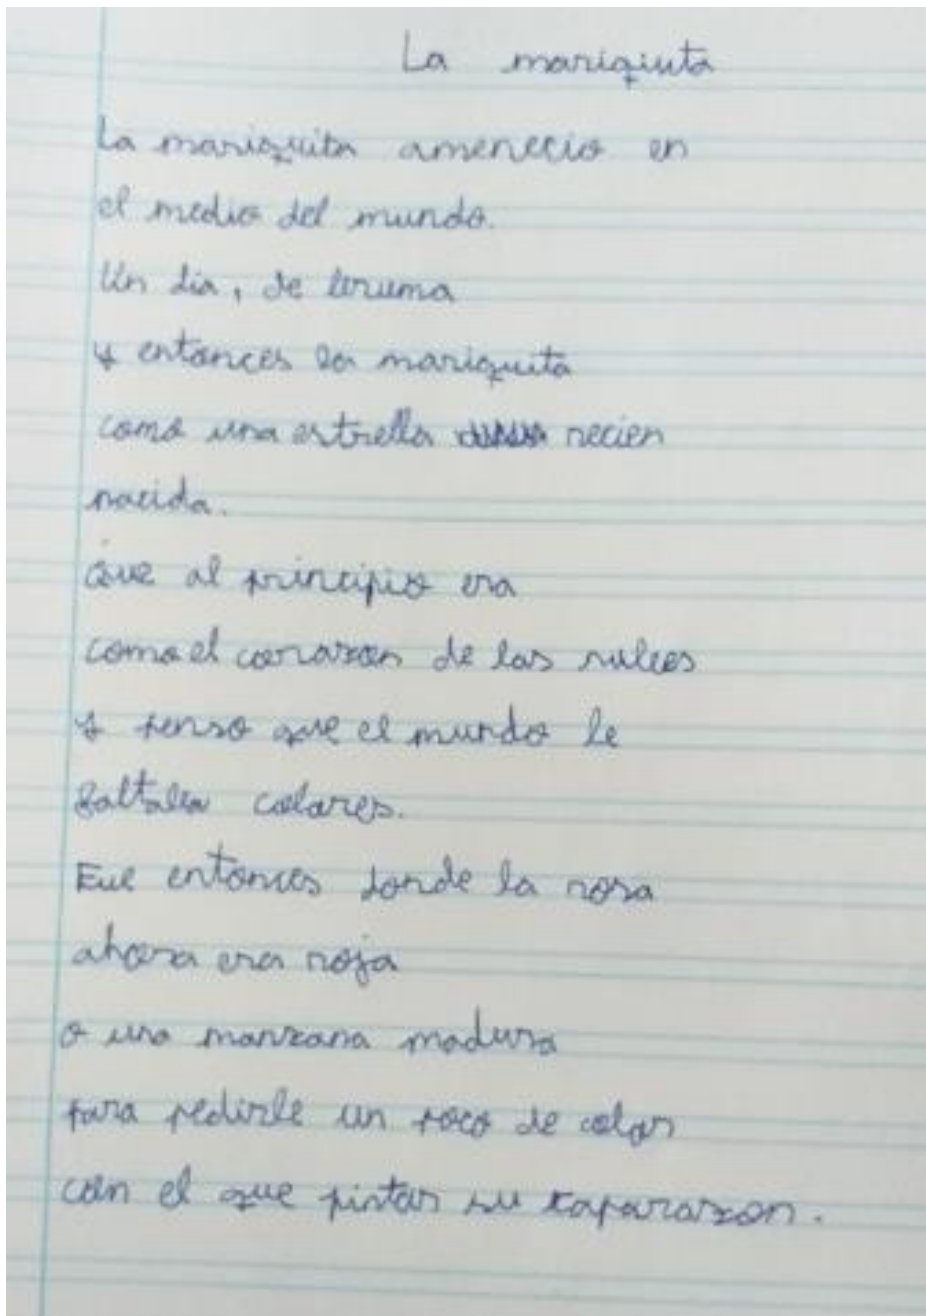 La mariqiuta
La mariquita amenecio en
el medio del mundo.
Un dia, de bruma
y entonces la mariquita
como una estrella recien
nacida.
Que al principio era
como el corazon de las nubes
y penso que el mundo le
faltaba colores.
Fue entonces donde la rosa
ahora era roja
o una manzana madura
para pedirle un poco de color
con el que pintar su kaparazon.